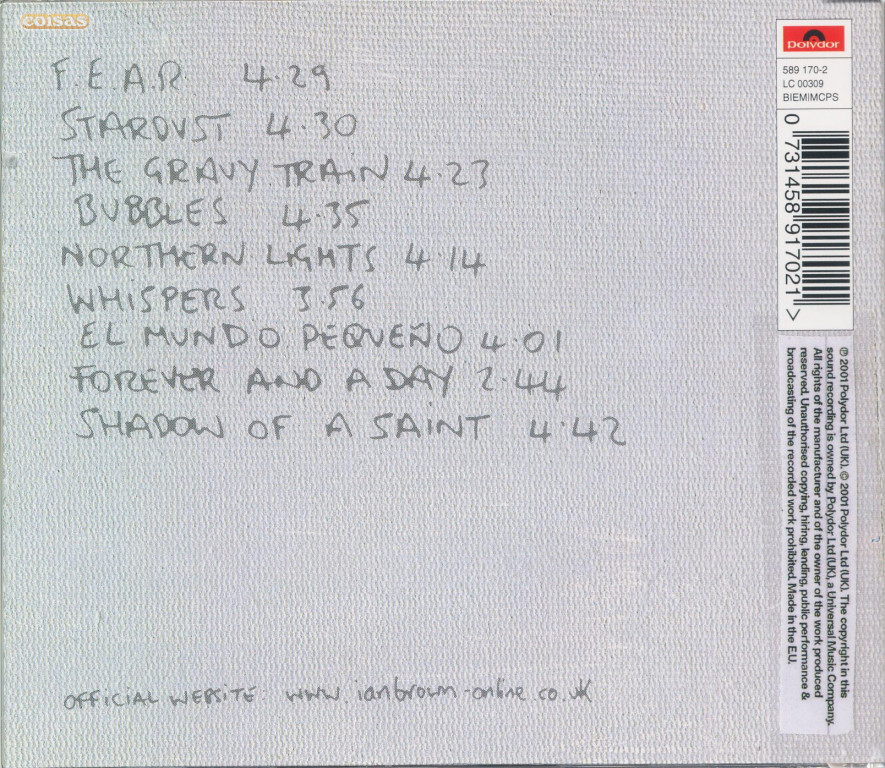 coisas
F.E.A.R. 4.29
STARDUST 4.30
THE GRAVY TRAIN 4.23
BUBBLES 4.35
NORTHERN LIGHTS 4.14
WHISPERS 3.56
EL MUNDO PEQUEÑO 4.01
FOREVER AND A DAY 2.44
SHADOW OF A SAINT 4.42
OFFICIAL WEBSITE: www.ianbrown-online.co.uk
Polydor
589 170-2
LC 00309
BIEM/MCPS
0 731458 917021 >
℗ 2001 Polydor Ltd (UK). © 2001 Polydor Ltd (UK). The copyright in this
sound recording is owned by Polydor Ltd (UK), a Universal Music Company.
All rights of the manufacturer and of the owner of the work produced
reserved. Unauthorised copying, hiring, lending, public performance &
broadcasting of the recorded work prohibited. Made in the E.U.